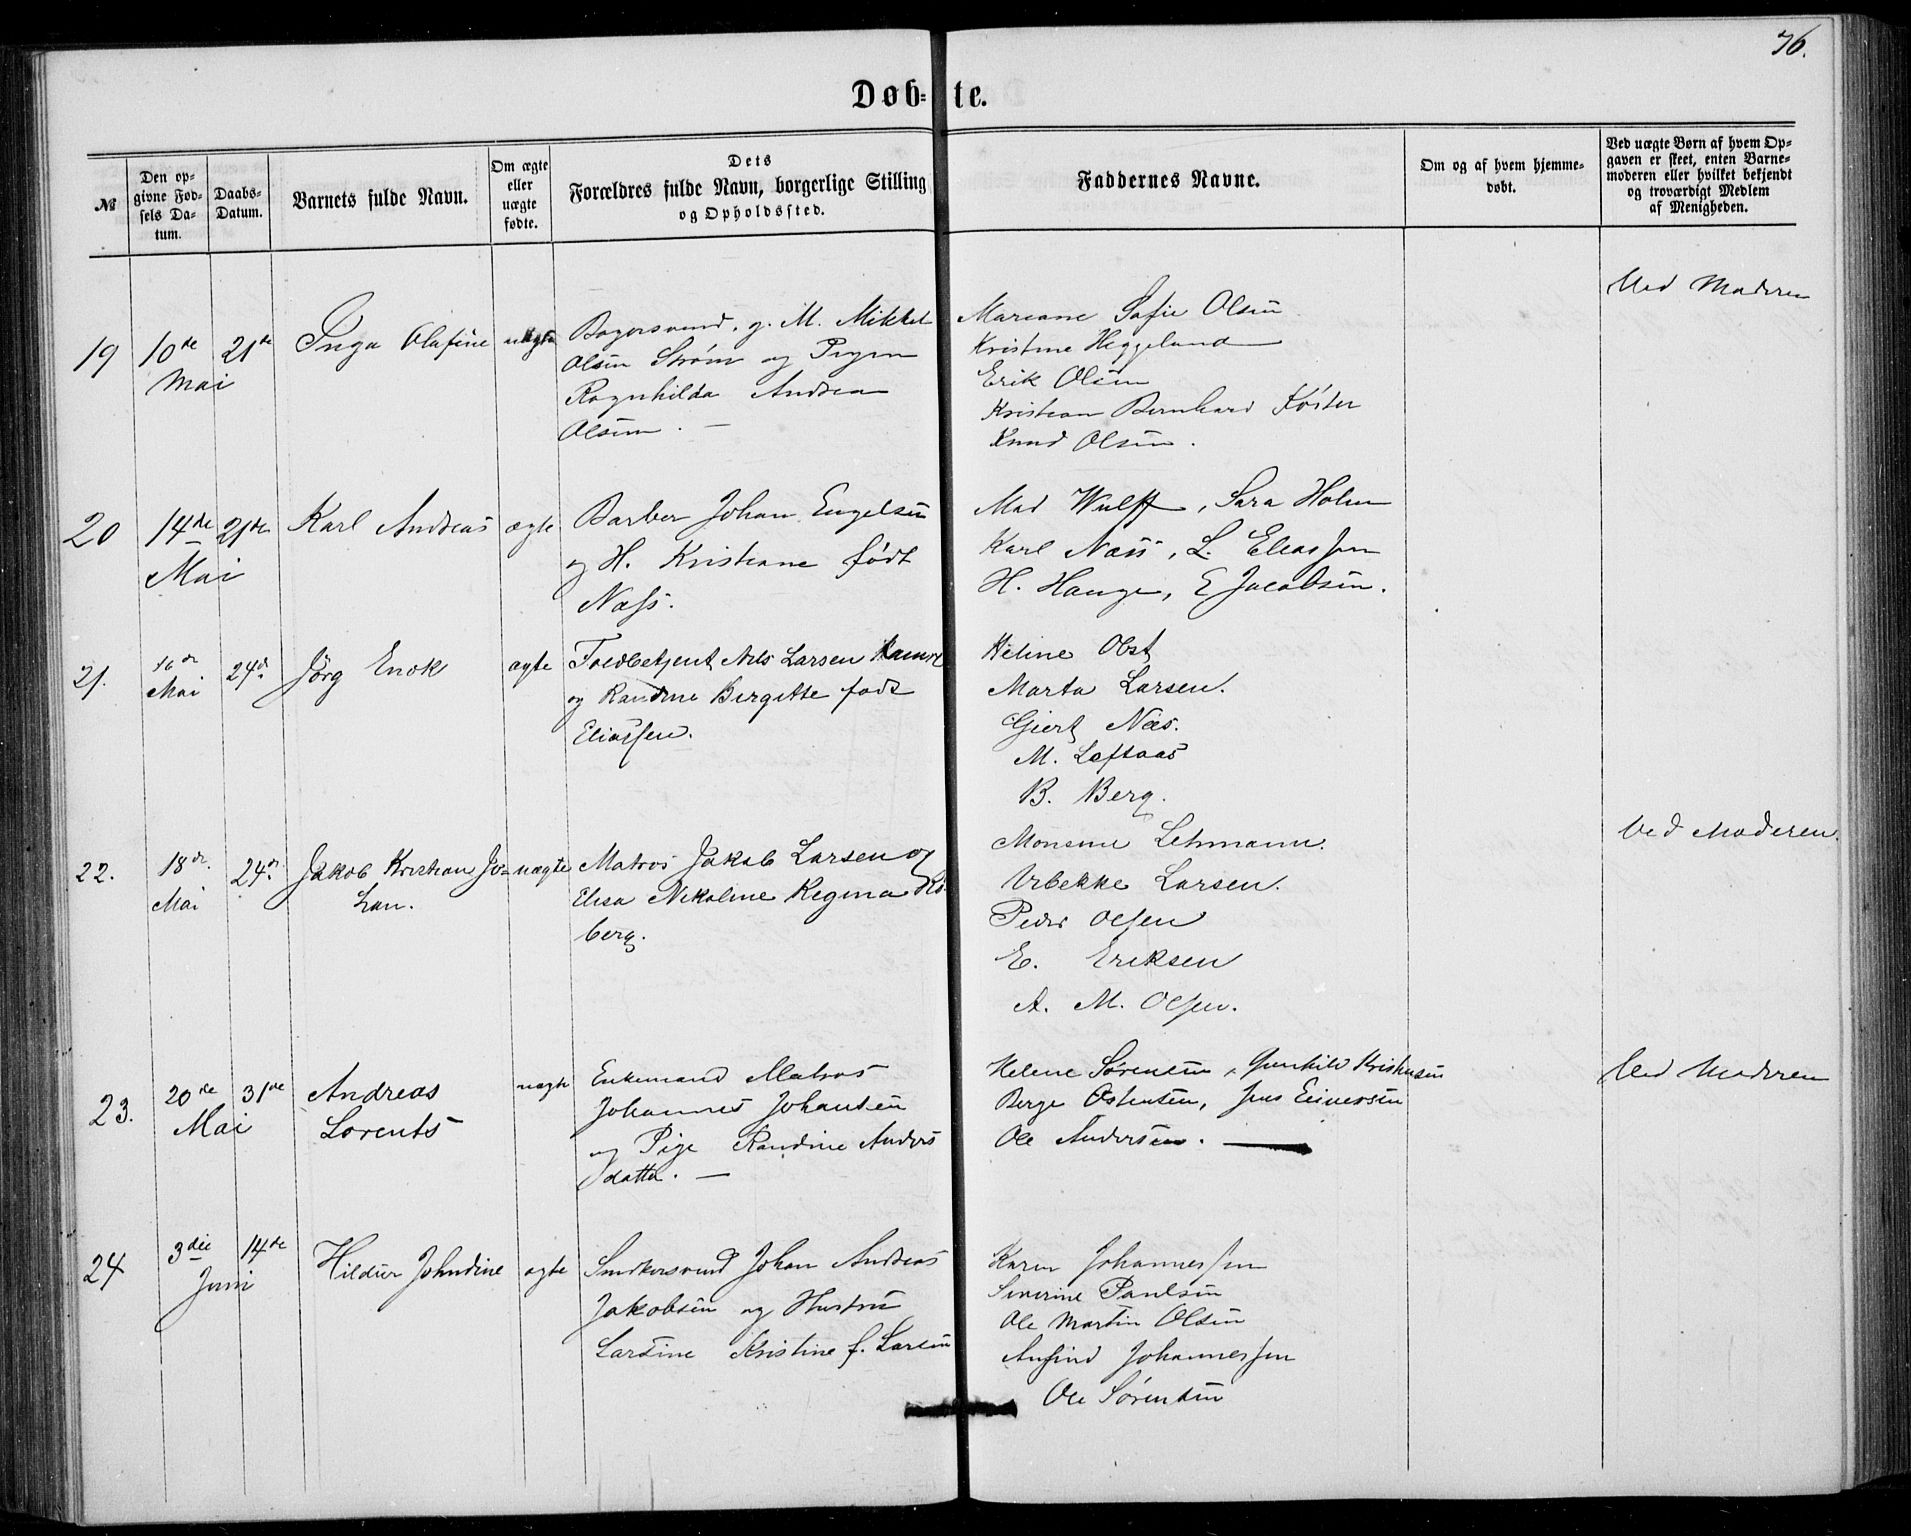 76.
Døb= te.
№
Den op-
givne Fød-
sels Da-
tum.
Daabs-
Datum.
Barnets fulde Navn.
Om ægte
eller
uægte
fødte.
Dets
Forældres fulde Navn, borgerlige Stilling
og Opholdssted.
Faddernes Navne.
Om og af hvem hjemme-
døbt.
Ved uægte Børn af hvem Op-
gaven er skeet, enten Barne-
moderen eller hvilket bekjendt
og troværdigt Medlem
af Menigheden.
19 10de 21de
Mai
Inga Olafine
uægte
Bagersvend, g. M. Mikkel
Olsen Strøm og Pigen
Ragnhilda Andrea
Olsen. —
Mariane Sofie Olsen
Kristine Heggeland
Erik Olsen
Kristian Bernhard Köster
Knud Olsen.
Ved Moderen
20 14de 21de
Mai
Karl Andreas
ægte
Barber Johan Engelsen
og H. Kristiane født
Næss.
Mad Wulff, Sara Holm
Karl Næss, L. Eliassen
H. Hauge, E Jacobsen.
21. 16de 24de
Mai
Jörg Enok
ægte
Toldbetjent Nils Larsen
og Randine Birgitte født
Eliassen.
Heline Obst
Marta Larsen.
Giert Næs.
M. Loftaas
B. Berg.
22. 18de 24de
Mai
Jakob Kristian Jo-
han.
uægte
Matros Jakob Larsen og
Elisa Nikoline Regina
berg.
Monsine Lehmann.
Vibekke Larsen.
Peder Olsen
E. Eriksen
A. M. Olsen.
Ved Moderen.
23. 20de 31de
Mai
Andreas
Lorents
uægte
Enkemand Matros
Johannes Johansen
og Pige Randine Anders
datter. —
Helene Sørensen, Gunhild Kristensen
Berge Ostensen, Jens Einersen
Ole Andersen. —
Ved Moderen
24 3die 14de
Juni
Hildur Johndine
ægte
Snedkersvend Johan Andreas
Jakobsen og Hustru
Lardine Kristine f. Larsen
Karen Johannessen
Severine Paulsen
Ole Martin Olsen
Anfind Johannessen
Ole Sørensen